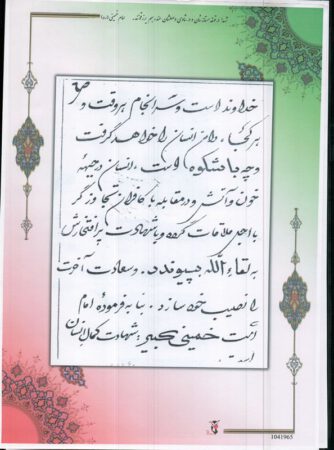 شهدا در قهقهه مستانه‌شان و در شادی وصولشان عند ربهم يرزقونند. امام خمینی
خداوند است و سرانجام هر وقت و
هر کجا، دامن انسان را خواهد گرفت
و چه با شکوه است، انسان در جبهه
خون و آتش و در مقابله با کافران تجاوزگر
با اجل ملاقات کرده و با شهادت پر افتخارش
به لقاء الله بپیوندد. و سعادت آخرت
را نصیب خود سازد. بنا به فرموده امام
امت خمینی کبیر: شهادت کمال انسان
است.
1041965